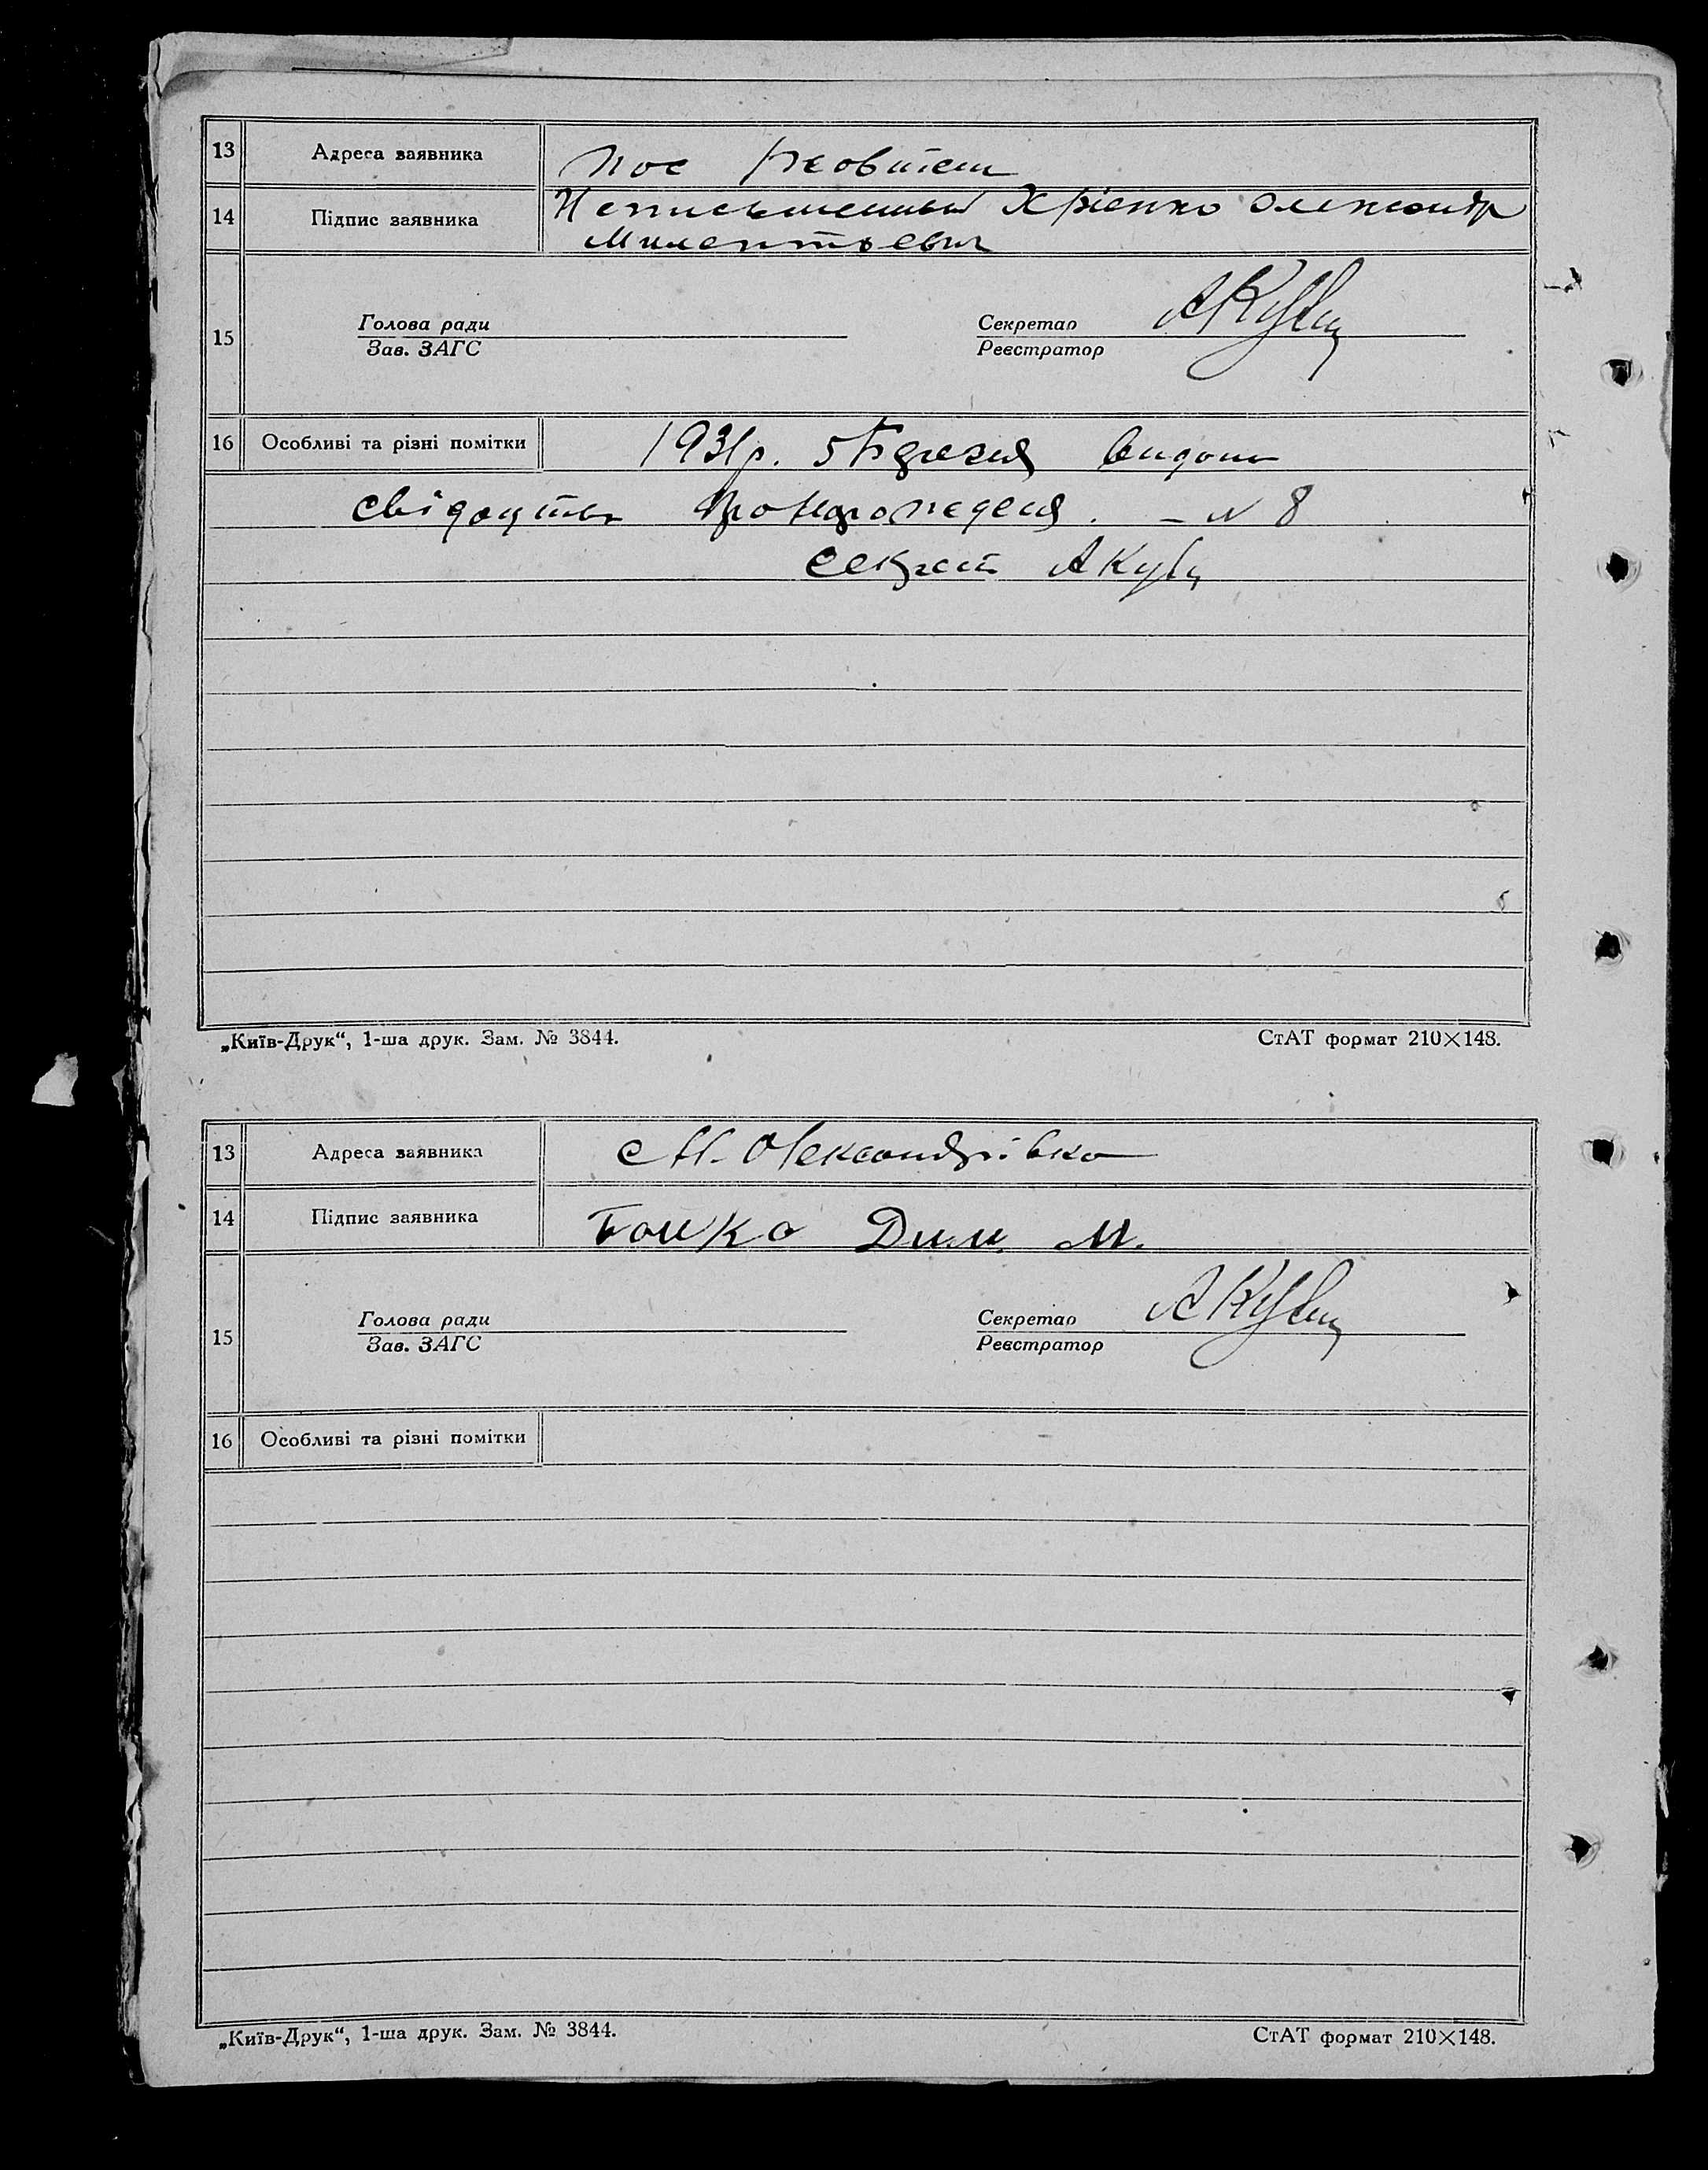 13 Адреса заявника пос Жовтень
14 Підпис заявника Неписьменный Хрієнко Олександр
Милентьевич
Голова ради Секретар
15
Зав. ЗАГС Реєстратор
16 Особливі та різні помітки 1931р. 5 грудня видано
свідоцтво про народження. – N 8
секрет АКу
„Київ-Друк“, 1-ша друк. Зам. № 3844. СтАТ формат 210×148.
13 Адреса заявника с М-Олександрівка
14 Підпис заявника Бойко Дим. М.
Голова ради Секретар
15
Зав. ЗАГС Реєстратор
16 Особливі та різні помітки
„Київ-Друк“, 1-ша друк. Зам. № 3844. СтАТ формат 210×148.